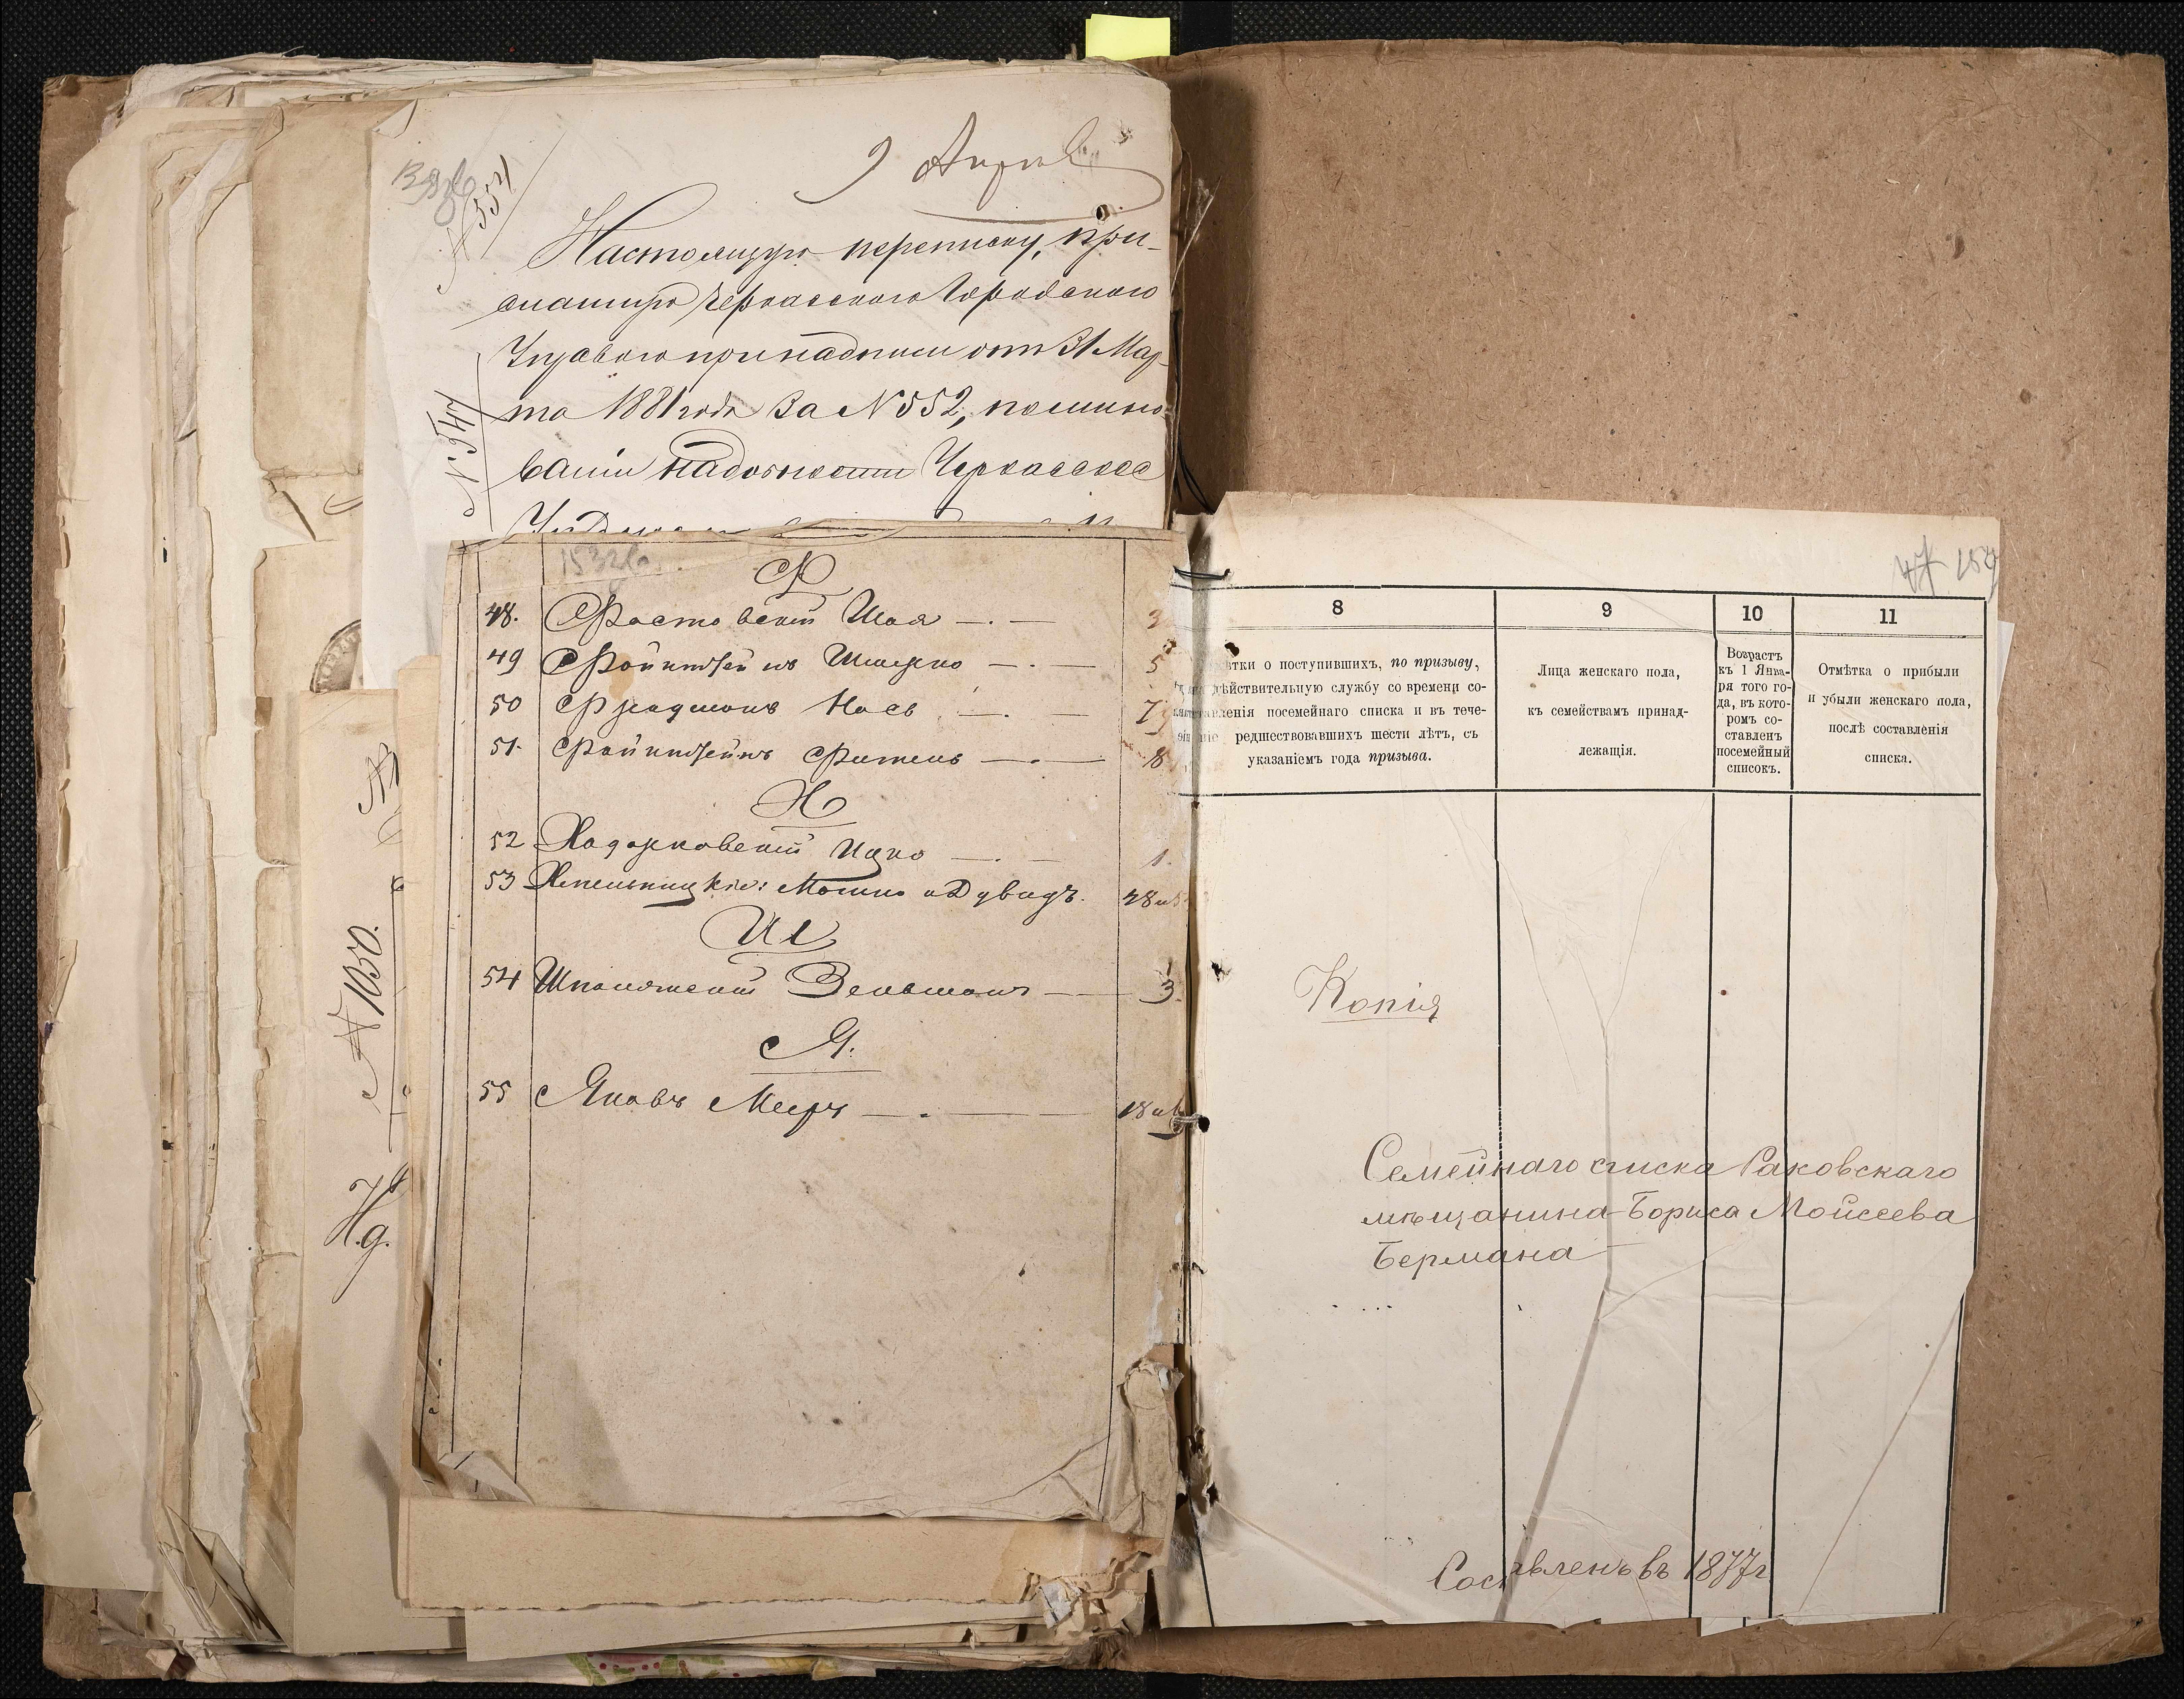 9 Апрѣ
№ 554
Настоящую переписку, при-
сланную Черкасского Городского
Управою при надписи отъ 31 Мар-
та 1881 года За № 552, по мино-
ваніи надобности Черкасское
№ 547
№ 1050.
Н.д.
1532
Ф
48. Фастовскій Шая — . — 3
49 Файнштейнъ Шмерко — . — 5
50 Фридманъ Нось — . — 7
51. Файнштейнъ Фишель — . — 18
Х
52 Ходорковскій Ицко — . — 1.
53 Хмельницкіе: Мошко и Дувидъ. 28 и
Ш
54 Шполянскій Зельманъ — 3.
Я.
55 Яковъ Мееръ — . — 18 и
47 159
8
9
10
11
тки о поступившихъ, по призыву,
дѣйствительную службу со времени со-
вленія посемейнаго списка и въ тече-
ніе редшествовавшихъ шести лѣтъ, съ
указаніемъ года призыва.
Лица женскаго пола,
къ семействамъ принад-
лежащія.
Возрастъ
къ 1 Янва-
ря того го-
да, въ кото-
ромъ со-
ставленъ
посемейный
списокъ.
Отмѣтка о прибыли
и убыли женскаго пола,
послѣ составленія
списка.
Копія
Семейнаго списка Раковскаго
мѣщанина Бориса Мойсеева
Бермана
Составленъ въ 1877 г